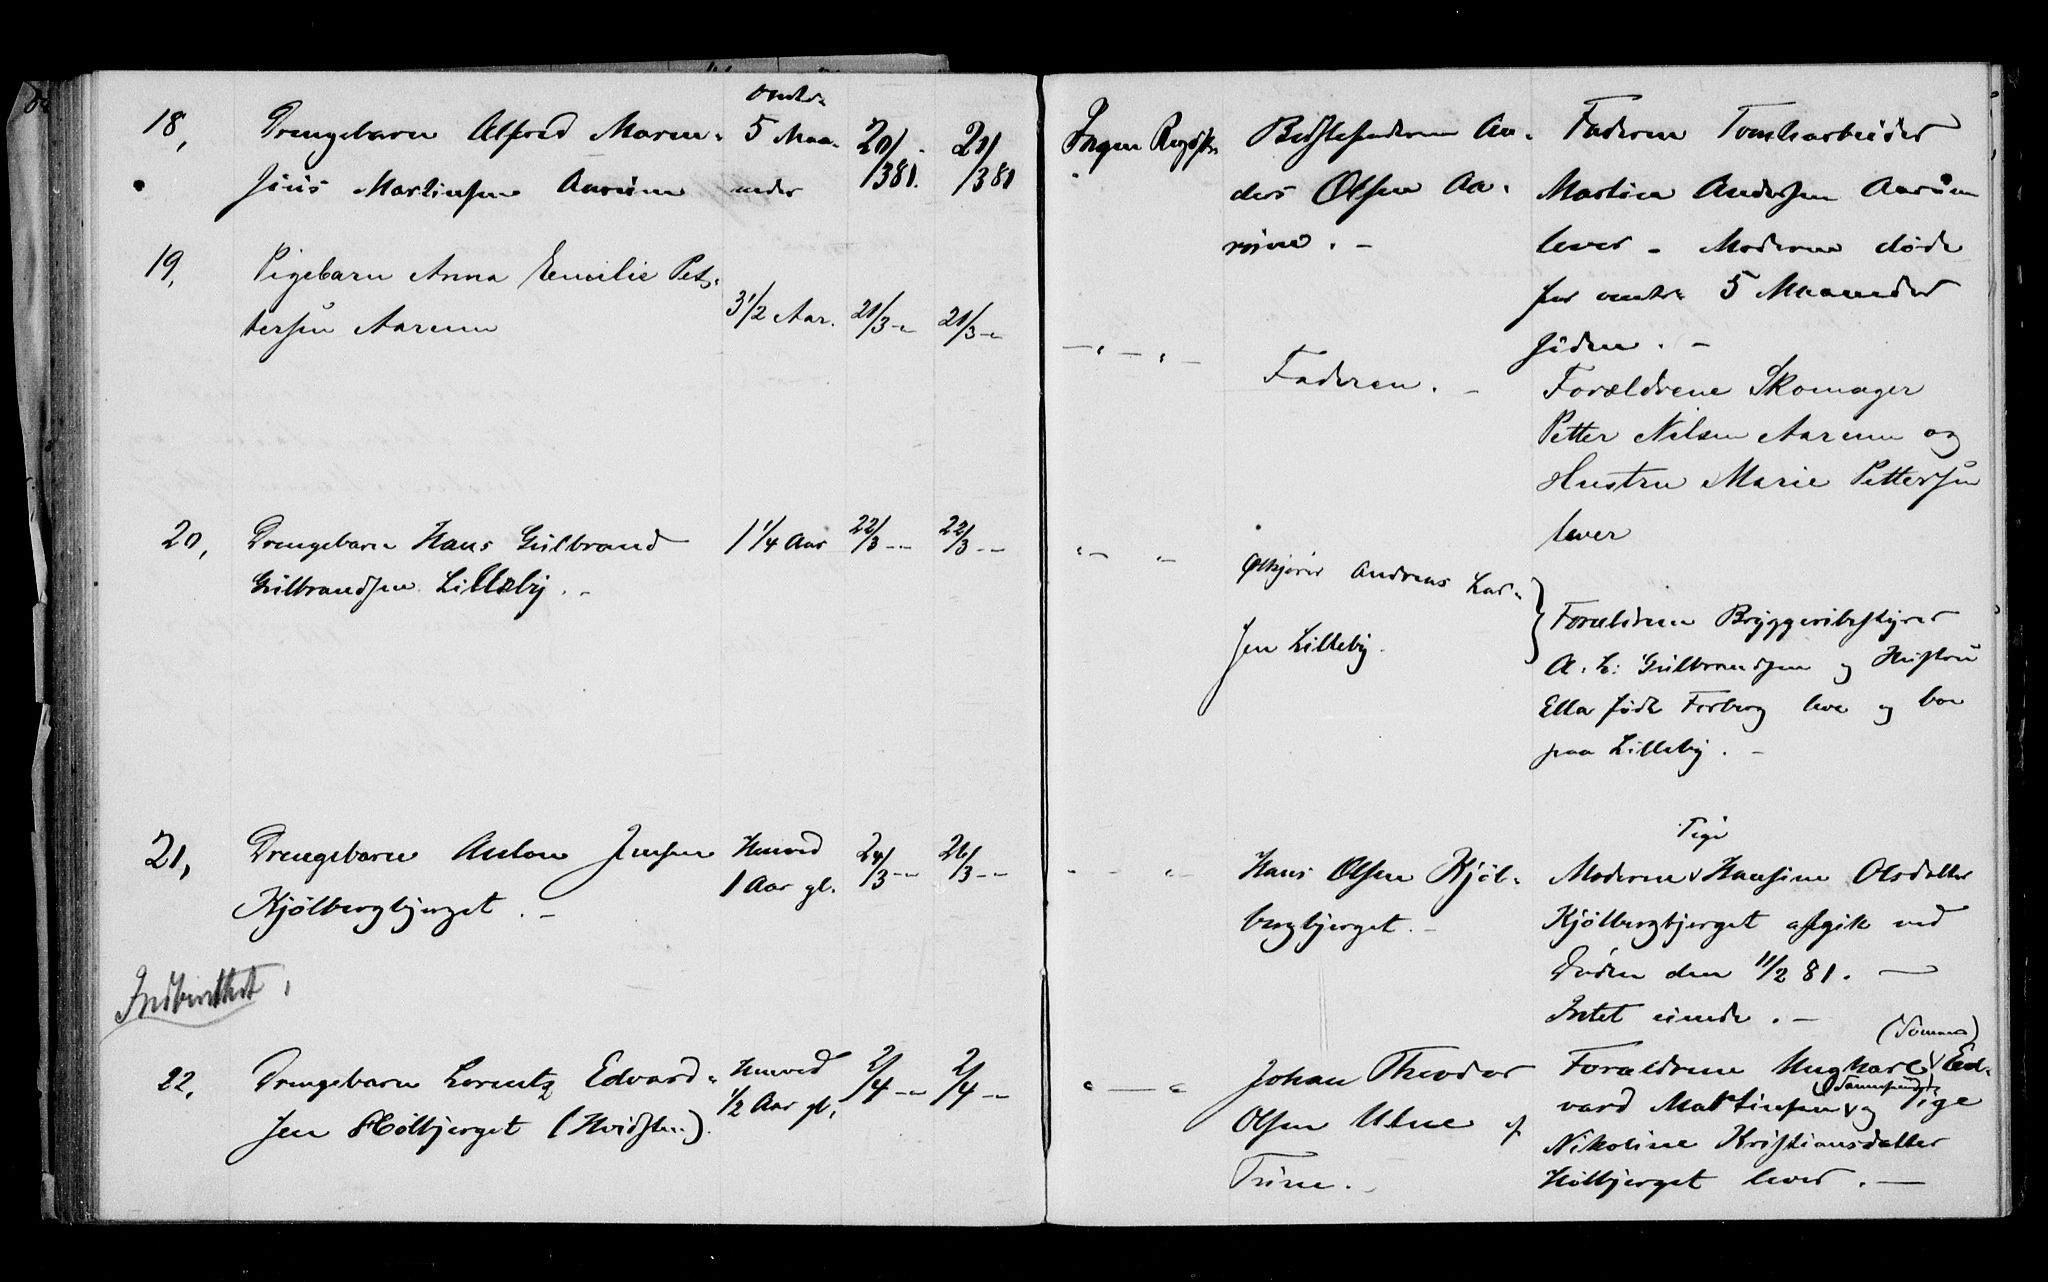 18,
Drengebarn Alfred Maren-
sius Martinsen Aarum
omtr.
5 Maa-
neder
20/
/381.
21/
/381
Ingen Registr.
Bedstefaderen An-
ders Olsen Aa-
rum. -
Faderen Tomtearbeider
Martin Andersen Aarum
lever - Moderen døde
for omtr. 5 Maaneder
siden. -
19,
Pigebarn Anna Emilie Pet-
tersen Aarum
3 1/2 Aar.
21/3 -"
21/3 -"
- " - " -
Faderen. -
Forældrene Skomager
Petter Nilsen Aarum og
Hustru Marie Pettersen
lever
20,
Drengebarn Hans Gulbrand
Gulbrandsen Lilleby. -
1 1/4 Aar
22/3 --
22/3 --
" - "
Ølkjører Andreas Lar-
sen Lilleby.
Forældrene Bryggeribestyrer
A. L. Gulbrandsen og Hustru
Ella født Forberg leve og boe
paa Lilleby. -
21,
Drengebarn Anton Jensen
Kjølbergbjerget. -
Henved
1 Aar gl.
24/3 --
26/3 --
- - " -
Hans Olsen Kjøl-
bergbjerget. -
Pige
Moderen Hansine Olsdatter
Kjølbergbjerget afgik ved
Døden den 11/2 81. -
Intet eiende. -
Indberettet,
22,
Drengebarn Lorentz Edvard-
sen Hølbjerget (Hvidsten).
Henved
1/2 Aar gl.
2/4 -"
2/4 -"
" - "
Johan Theodor
Olsen Ulne af
Trine. -
Forældrene Ungkarl Ed-
vard Martinsen og Pige
Nikoline Kristiansdatter
Hølbjerget lever. -